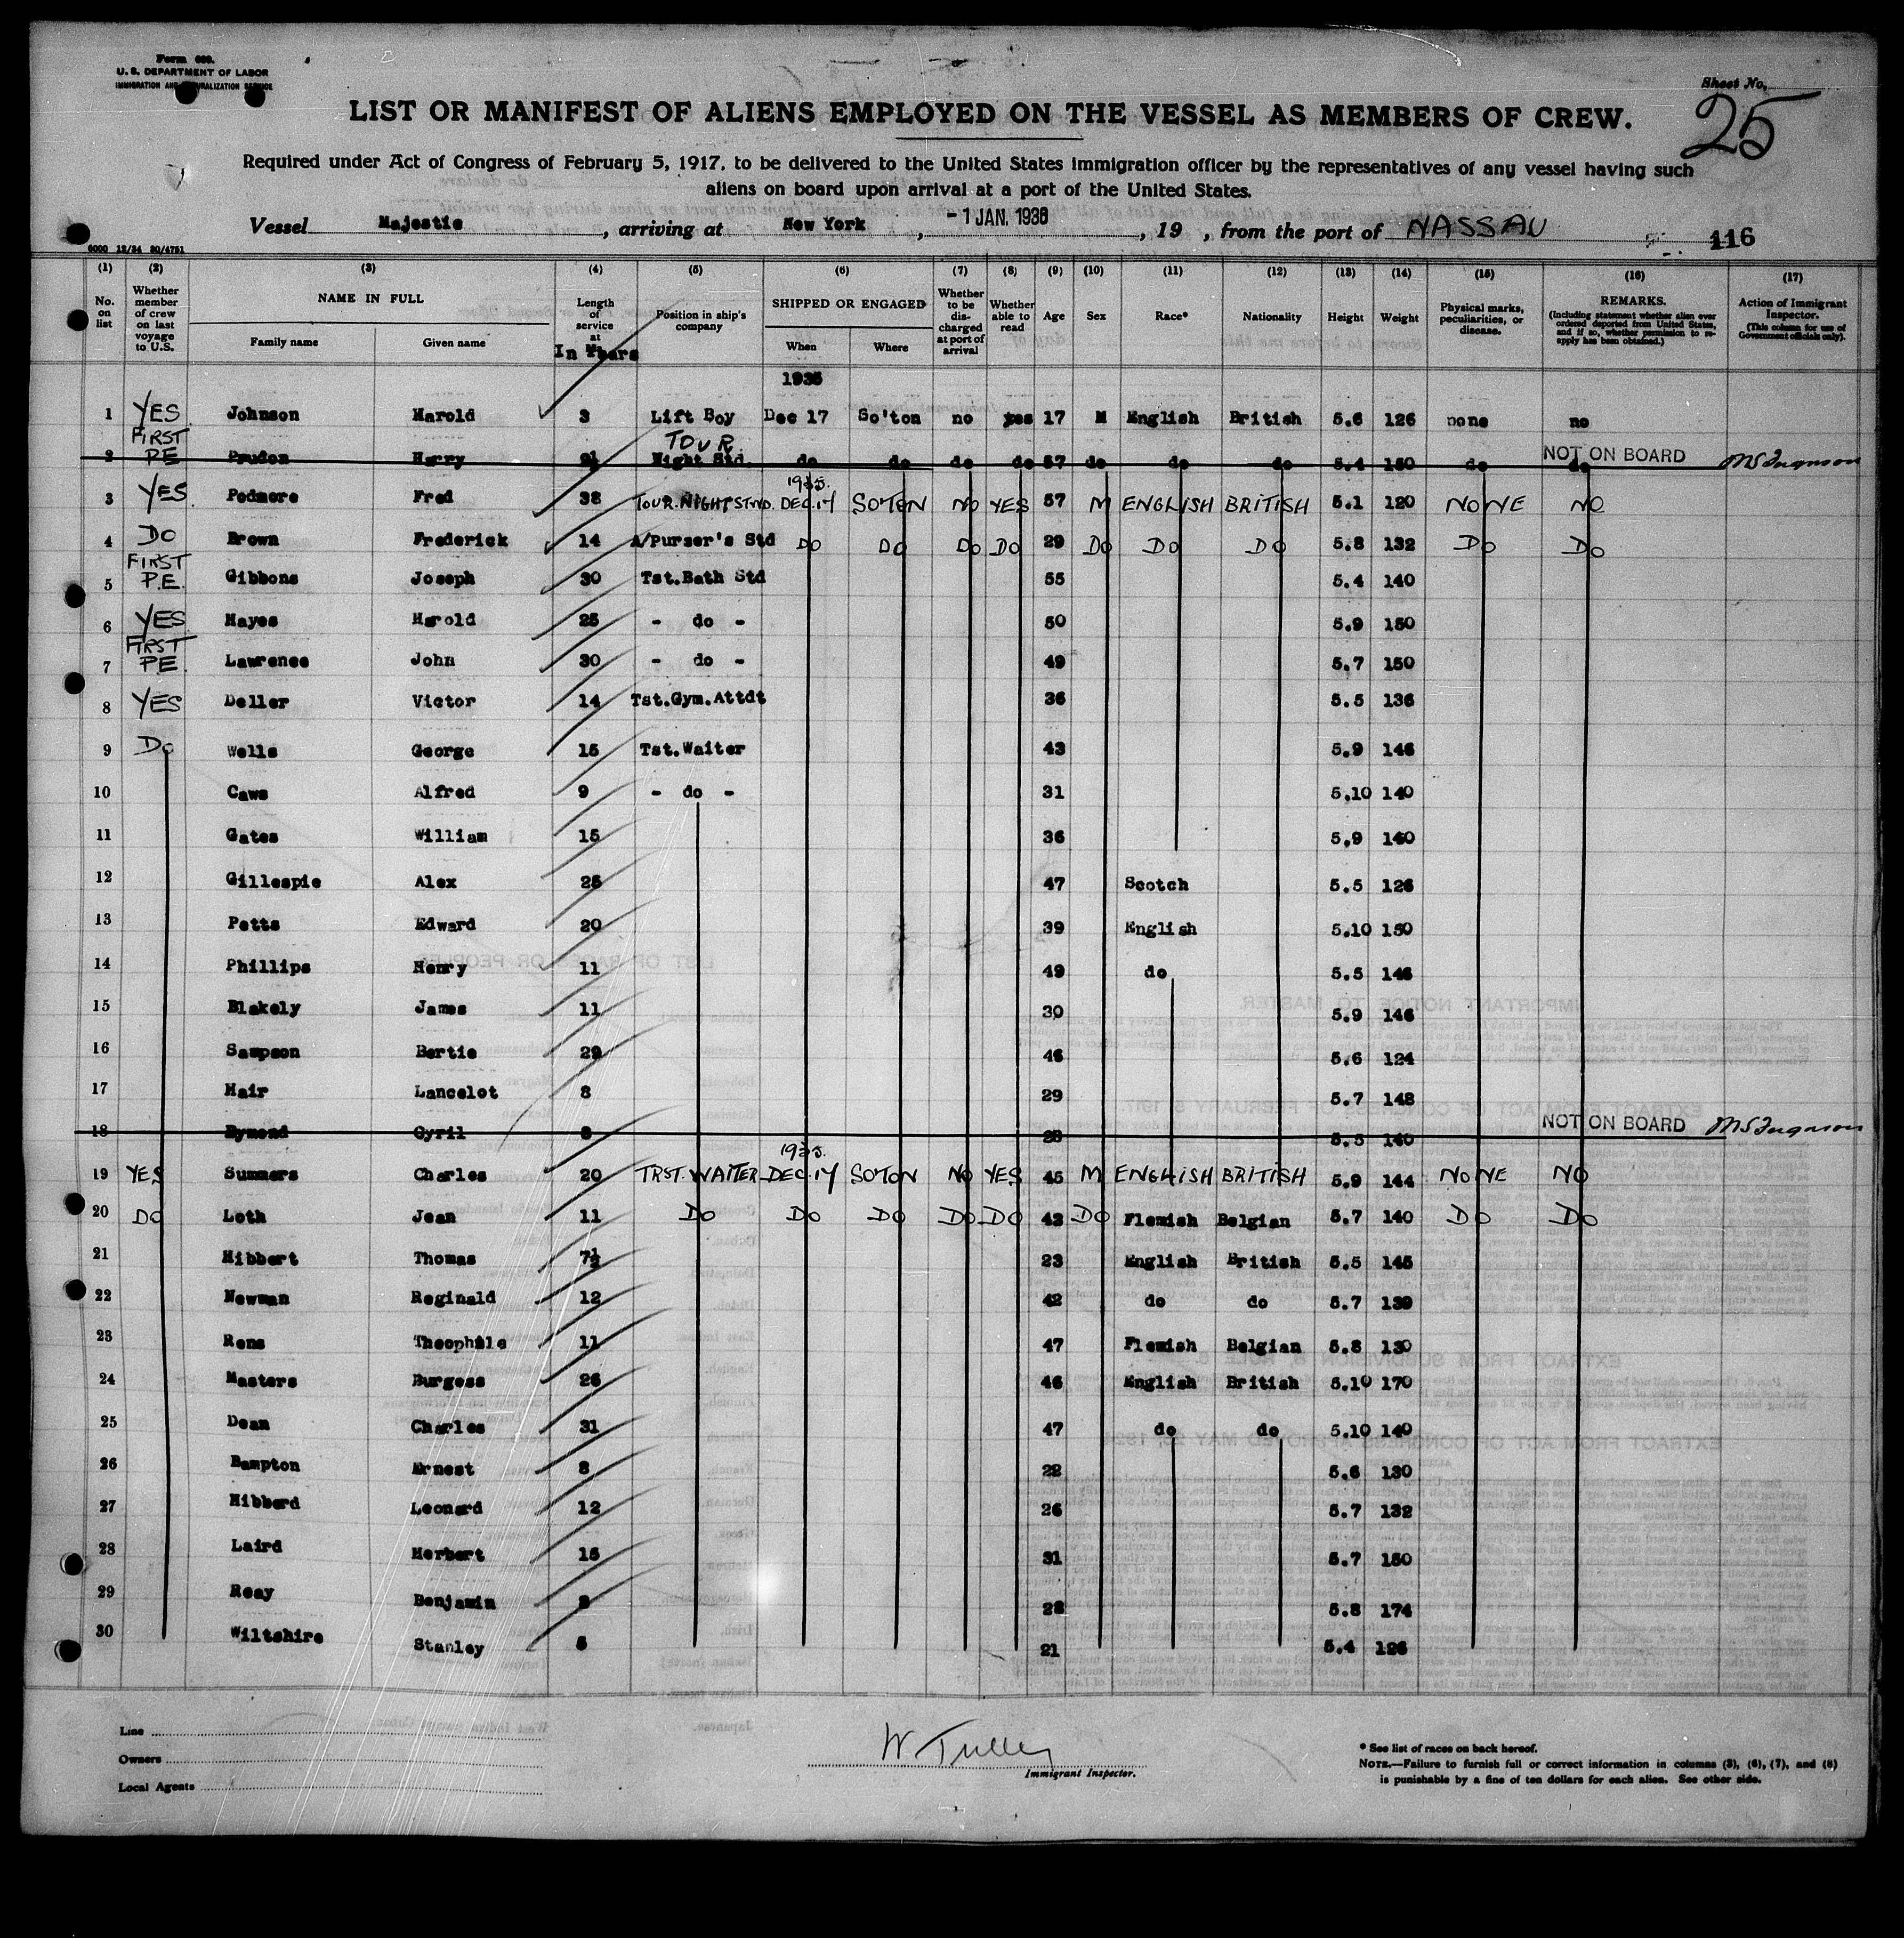 Form 680.
U. S. DEPARTMENT OF LABOR
IMMIGRATION AND NATURALIZATION SERVICE
Sheet No. 25
LIST OR MANIFEST OF ALIENS EMPLOYED ON THE VESSEL AS MEMBERS OF CREW.
Required under Act of Congress of February 5, 1917, to be delivered to the United States immigration officer by the representatives of any vessel having such
aliens on board upon arrival at a port of the United States.
Vessel Majestic, arriving at New York, - 1 JAN. 1936, 19 , from the port of NASSAU
6000 12/34 30/4751
116
(1) (2) (3) (4) (5) (6) (7) (8) (9) (10) (11) (12) (13) (14) (15) (16) (17)
No. on list Whether member of crew on last voyage to U.S. NAME IN FULL Family name Given name Length of service at In Years Position in ship's company SHIPPED OR ENGAGED When Where Whether to be discharged at port of arrival Whether able to read Age Sex Race* Nationality Height Weight Physical marks, peculiarities, or disease. REMARKS. (Including statement whether alien ever ordered deported from United States, and if so, whether permission to re-apply has been obtained.) Action of Immigrant Inspector. (This column for use of Government officials only).
1935
1 YES Johnson Harold 3 Lift Boy Dec 17 So'ton no yes 17 M English British 5.6 126 none no
2 FIRST P.E Prudon Harry TOUR Night Std. do do do do 57 do do do 5.4 150 do do NOT ON BOARD
1935.
3 YES Podmore Fred 38 TOUR.NIGHT STWD. DEC.17 SO'TON NO YES 57 M ENGLISH BRITISH 5.1 120 NONE NO
4 DO Brown Frederick 14 A/Purser's Std DO DO DO DO 29 DO DO DO 5.8 132 DO DO
5 FIRST P.E. Gibbons Joseph 30 Tst.Bath Std 55 5.4 140
6 YES Hayes Harold 25 - do - 50 5.9 150
7 FIRST P.E. Lawrence John 30 - do - 49 5.7 150
8 YES Deller Victor 14 Tst.Gym.Attdt 36 5.5 136
9 Do Wells George 15 Tst.Waiter 43 5.9 146
10 Caws Alfred 9 - do - 31 5.10 140
11 Gates William 15 36 5.9 140
12 Gillespie Alex 25 47 Scotch 5.5 126
13 Petts Edward 20 39 English 5.10 150
14 Phillips Henry 11 49 do 5.5 146
15 Blakely James 11 30 5.9 146
16 Sampson Bertie 29 46 5.6 124
17 Hair Lancelot 8 29 5.7 148
18 Dymond Cyril 5.5 140 NOT ON BOARD
1935.
19 YES Summers Charles 20 TRST. WAITER DEC.17 SO'TON NO YES 45 M ENGLISH BRITISH 5.9 144 NONE NO
20 DO Loth Jean 11 DO DO DO DO DO 43 DO Flemish Belgian 5.7 140 DO DO
21 Hibbert Thomas 7½ 23 English British 5.5 145
22 Newman Reginald 12 42 do do 5.7 139
23 Rens Theophile 11 47 Flemish Belgian 5.8 130
24 Masters Burgess 26 46 English British 5.10 170
25 Dean Charles 31 47 do do 5.10 140
26 Bampton Ernest 8 22 5.6 130
27 Hibberd Leonard 12 26 5.7 132
28 Laird Herbert 15 31 5.7 150
29 Reay Benjamin 28 5.8 174
30 Wiltshire Stanley 5 21 5.4 126
Line
Owners
Local Agents
W Tulley
Immigrant Inspector.
* See list of races on back hereof.
NOTE.—Failure to furnish full or correct information in columns (3), (6), (7), and (8)
is punishable by a fine of ten dollars for each alien. See other side.